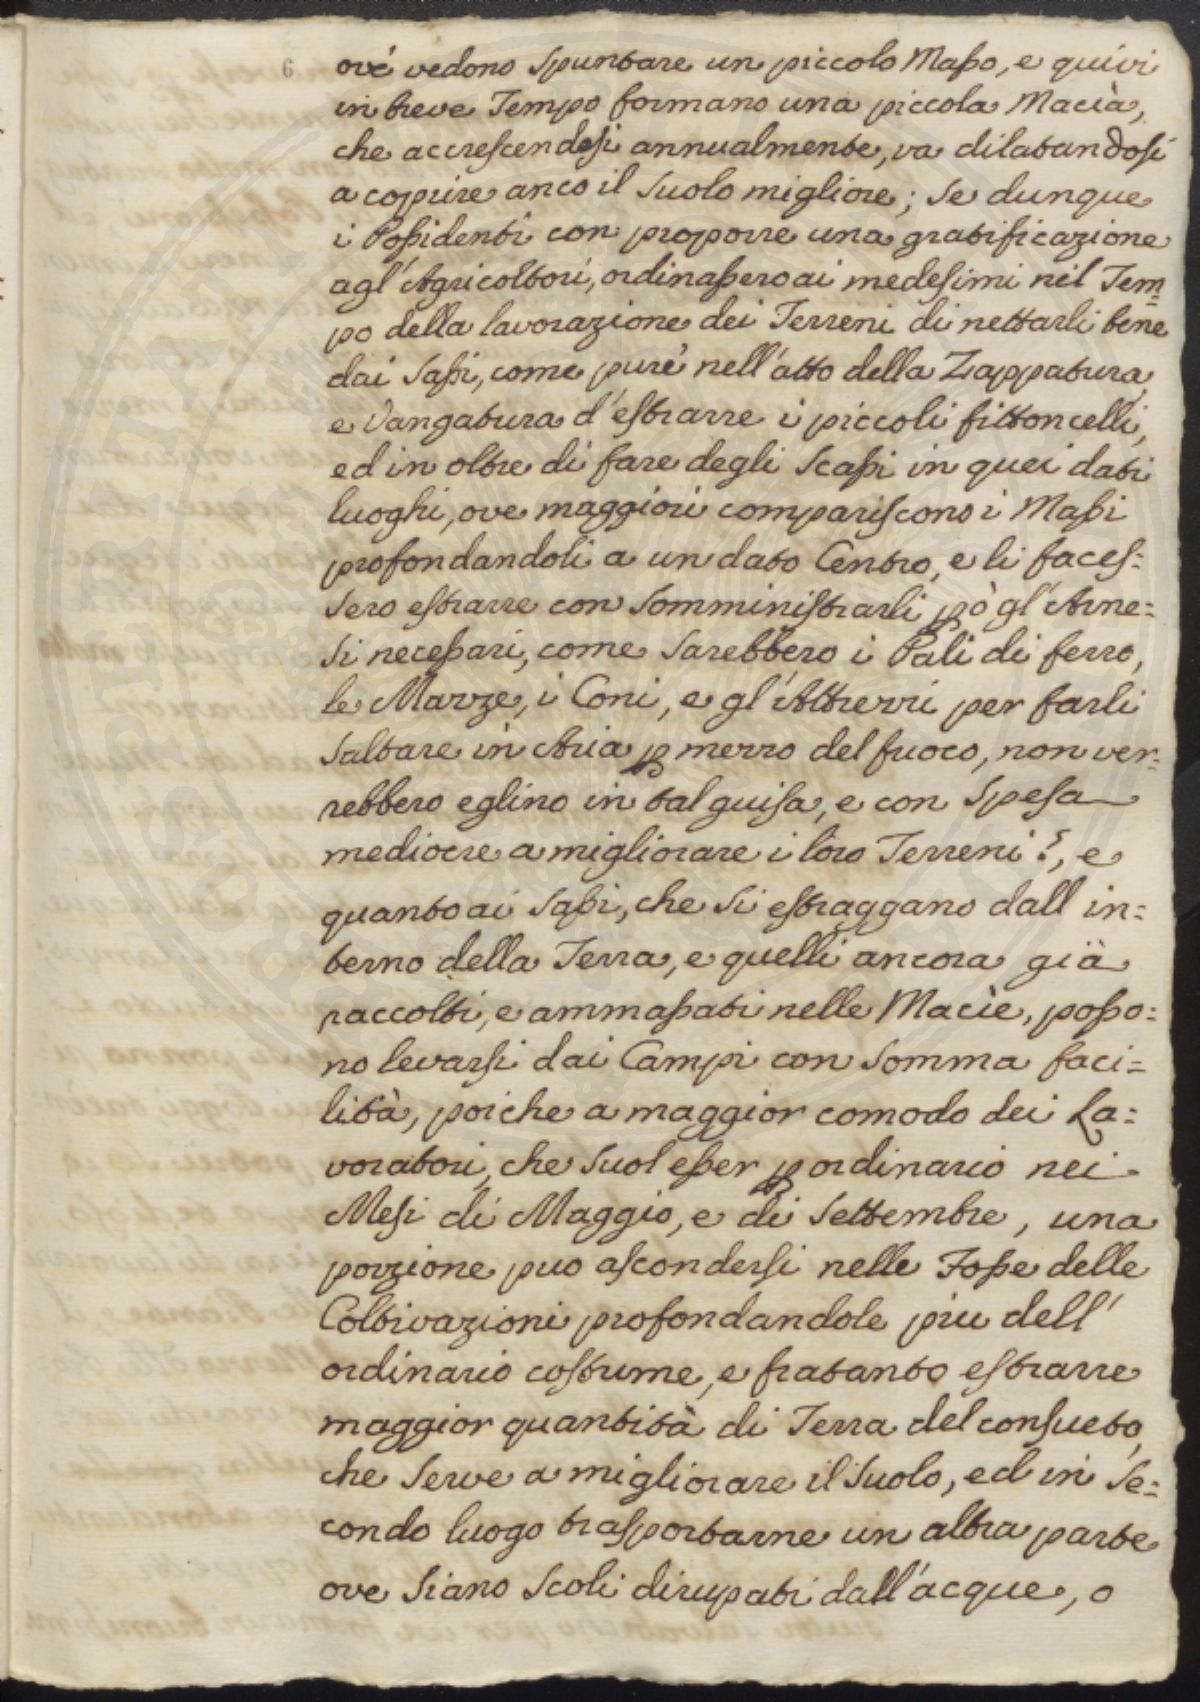 6
ove vedono spuntare un piccolo Maßo, e quivi
in breve Tempo formano una piccola Macìa,
che accrescendosi annualmente, va dilatandosi
a coprire anco il Suolo migliore; Se dunque
i Poßidenti con proporre una gratificazione
agl'Agricoltori, ordinaßero ai medesimi nel Tem=
po della lavorazione dei Terreni di nettarli bene
dai Saßi, come pure nell'atto della Zappatura,
e Vangatura d'estrarre i piccoli fittoncelli,
ed in oltre di fare degli Scaßi in quei dati
luoghi, ove maggiori compariscono i Maßi
profondandoli a un dato Centro, e li faces=
sero estrarre con Somministrarli pò gl'Arne=
si neceßari, come Sarebbero i Pali di ferro,
le Mazze, i Coni, e gl'Attrezzi per farli
Saltare in Aria p mezzo del fuoco, non ver=
rebbero eglino in tal guisa, e con Spesa
mediocre a migliorare i loro Terreni?, e
quanto ai Saßi, che Si estraggano dall in=
terno della Terra, e quelli ancora già
raccolti, e ammaßati nelle Macìe, poßo=
no levarsi dai Campi con Somma faci=
lità, poiche a maggior comodo dei La=
voratori, che Suol eßer p ordinario nei
Mesi di Maggio, e di Settembre, una
porzione puo ascondersi nelle Foße delle
Coltivazioni profondandole piu dell'
ordinario costume, e fratanto estrarre
maggior quantità di Terra del consueto,
che Serve a migliorare il Suolo, ed in Se=
condo luogo trasportarne un altra parte
ove Siano Scoli dirupati dall'acque, o